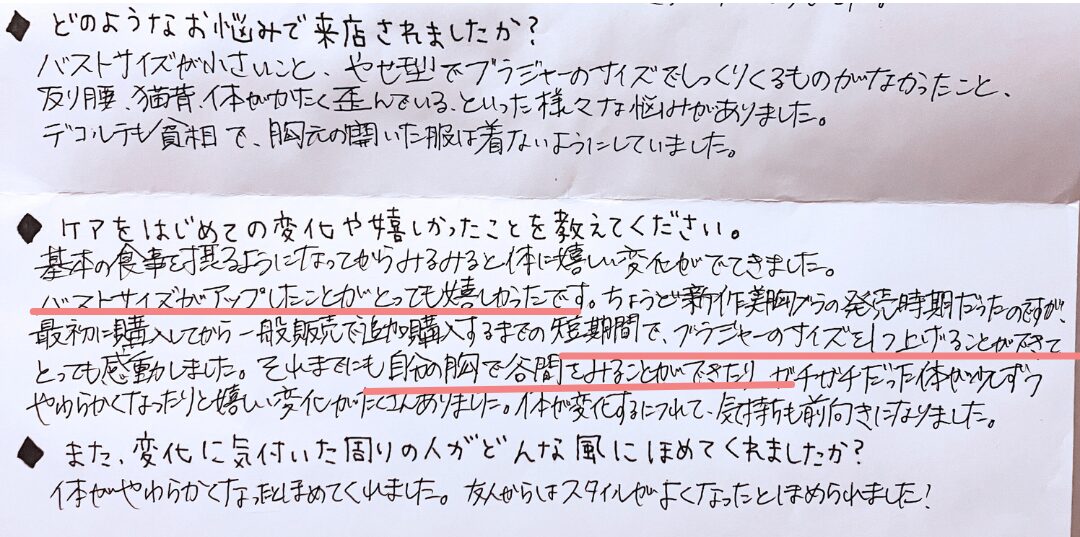 ◆ どのようなお悩みで来店されましたか?
バストサイズが小さいこと、やせ型でブラジャーのサイズでしっくりくるものがなかったこと、
反り腰、猫背、体がかたく歪んでいる、といった様々な悩みがありました。
デコルテも貧相で、胸元の開いた服は着ないようにしていました。
◆ ケアをはじめての変化や嬉しかったことを教えてください。
基本の食事を摂るようになってからみるみると体に嬉しい変化がでてきました。
バストサイズがアップしたことがとっても嬉しかったです。ちょうど新作美胸ブラの発売時期だったのですが、
最初に購入してから一般販売で追加購入するまでの短期間で、ブラジャーのサイズを1つ上げることができて
とっても感動しました。それまでにも自分の胸で谷間をみることができたり ガチガチだった体が少しずつ
やわらかくなったりと嬉しい変化がたくさんありました。体が変化するにつれて、気持ちも前向きになりました。
◆ また、変化に気付いた周りの人がどんな風にほめてくれましたか?
体がやわらかくなったとほめてくれました。友人からはスタイルがよくなったとほめられました!